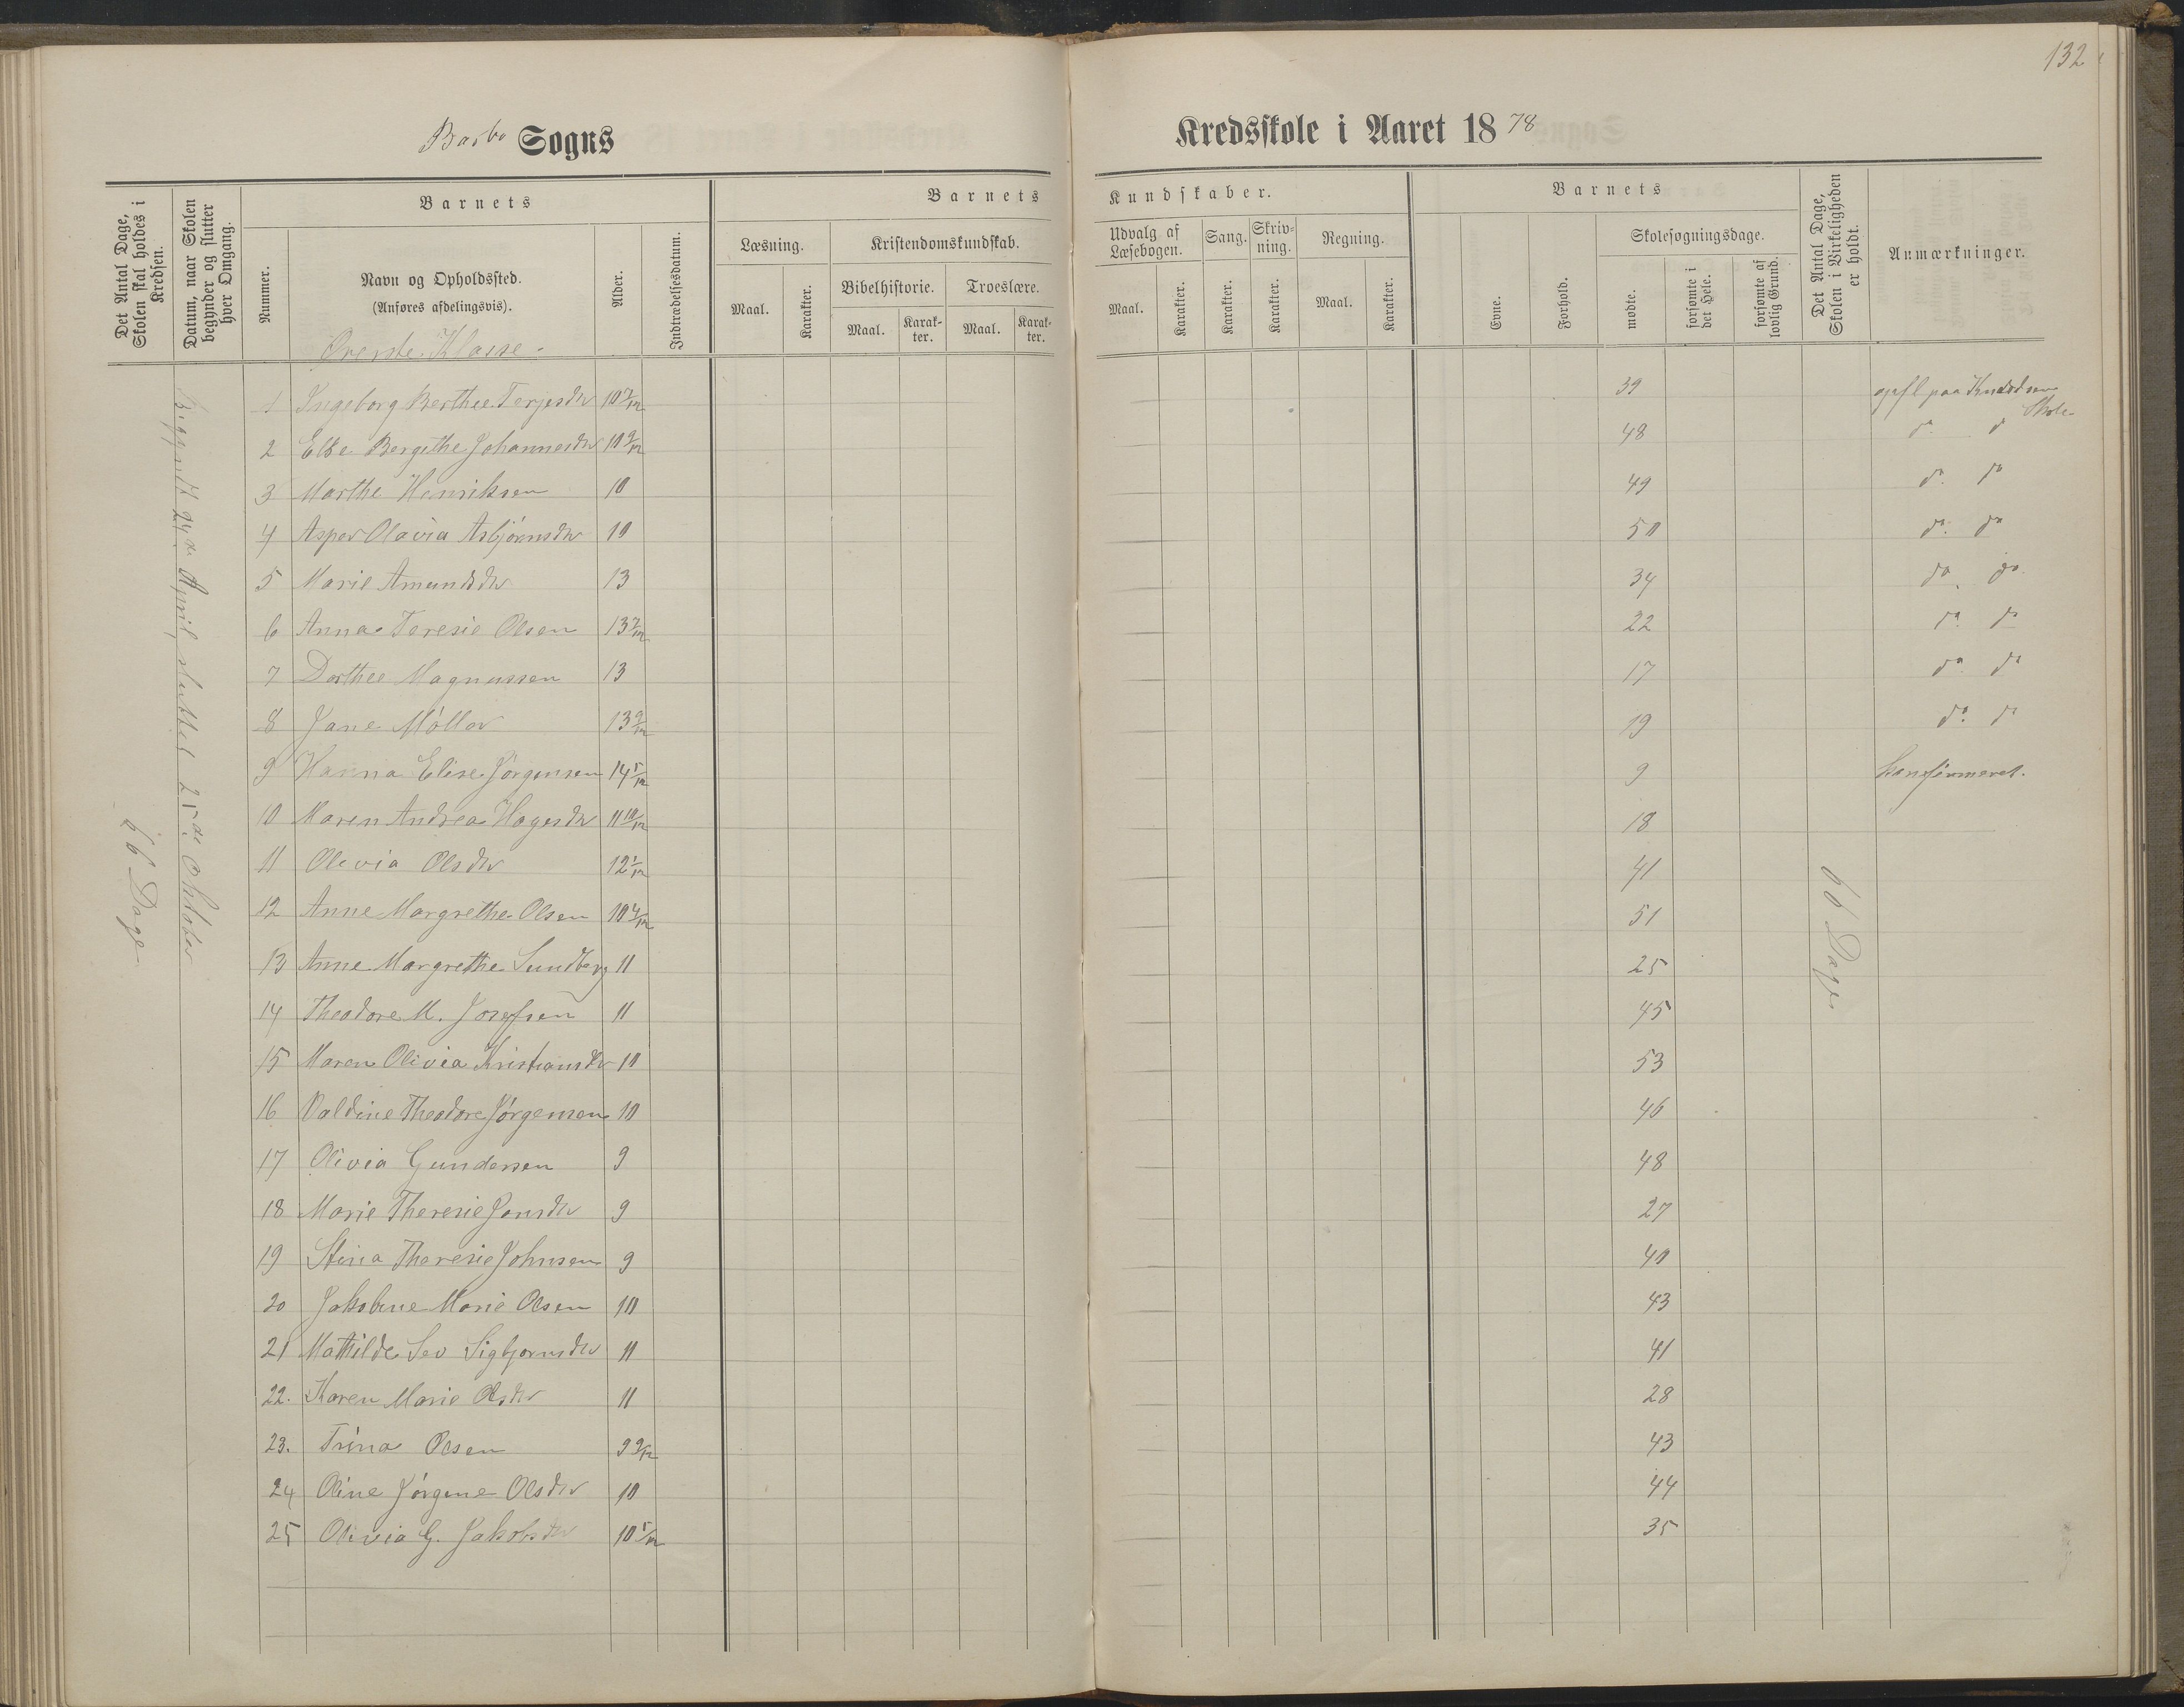 132
Barbo Sogns
Kredsskole i Aaret 1878
Det Antal Dage, Skolen skal holdes i Kredsen.
Datum, naar Skolen begynder og slutter hver Omgang.
Nummer.
Barnets
Navn og Opholdssted.
(Anføres afdelingsvis).
Øverste Klasse.
Alder.
Indtrædelsesdatum.
Barnets
Læsning.
Maal.
Karakter.
Kristendomskundskab.
Bibelhistorie.
Maal.
Karakter.
Troeslære.
Maal.
Karakter.
Kundskaber.
Udvalg af Læsebogen.
Maal.
Karakter.
Sang.
Karakter.
Skrivning.
Karakter.
Regning.
Maal.
Karakter.
Barnets
Evne.
Forhold.
Skolesøgningsdage.
mødte.
forsømte i det Hele.
forsømte af lovlig Grund.
Det Antal Dage, Skolen i Virkeligheden er holdt.
Anmærkninger.
66 Dage
Begyndt 24de April, sluttet 25de Oktober
1 Ingeborg Berthee Terjesdtr 10 7/12 39 opfl paa Knudsdsens Skole
2 Else Bergithe Johannesdtr 10 9/12 48 do do
3 Marthe Henriksen 10 49 do do
4 Asper Olavia Asbjörnsdtr 10 50 do do
5 Marie Amundsdtr 13 34 do do
6 Anna Teresie Olsen 13 7/12 22 do do
7 Dorthee Magnussen 13 17 do do
8 Jane Möller 13 9/12 19 do do
9 Hanna Elise Jörgensen 14 5/12 9 konfirmeret.
10 Maren Andrea Hagesdtr 11 10/12 18
11 Olevia Olsdtr 12 1/12 41
12 Anne Margrethe Olsen 10 4/12 51
13 Anne Margrethe Sundberg 11 25
14 Theodore M. Josefsen 11 45
15 Maren Olivia Kristiansdtr 10 53
16 Valdine Theodore Jörgensen 10 46
17 Olivia Gundersen 9 48
18 Marie Theresie Jonsdtr 9 27
19 Stina Theresie Johnsen 9 40
20 Jakobine Marie Olsen 10 43
21 Mathilde Sev Sigbjornsdtr 11 41
22. Karen Marie Olsdtr 11 28
23. Trina Olsen 9 9/12 43
24 Oline Jörgine Olsdtr 10 44
25 Olivia G. Jakobsdtr 10 5/12 35
66 Dage